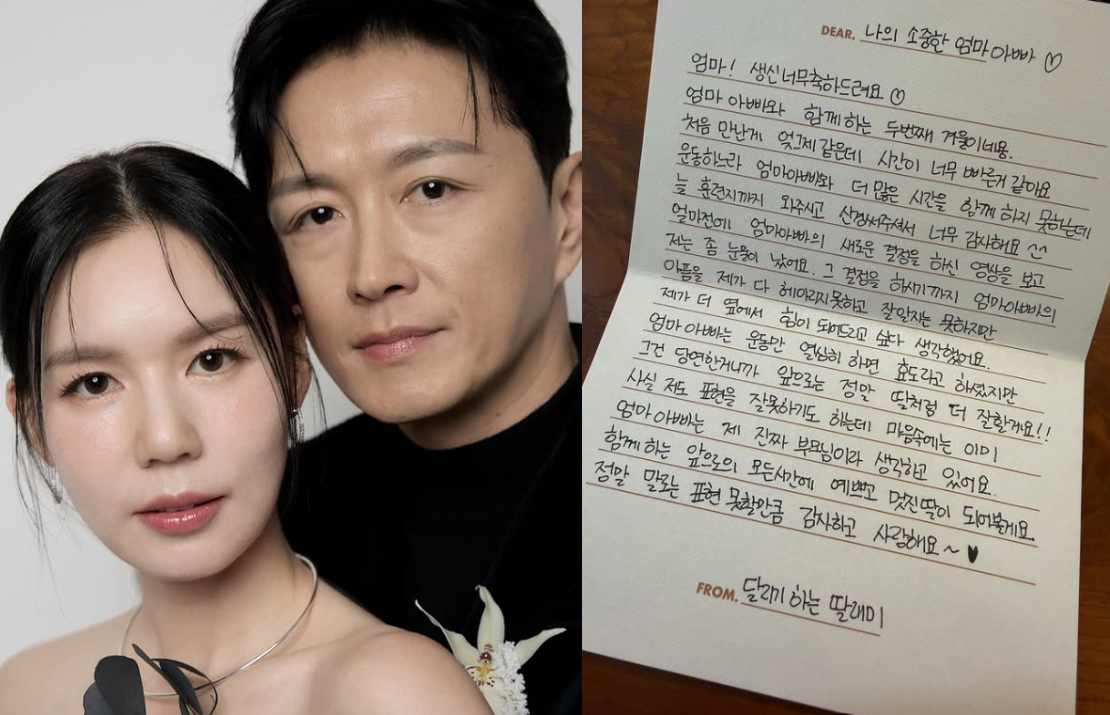 DEAR. 나의 소중한 엄마아빠 ♡
엄마! 생신너무축하드려요 ♡
엄마 아빠와 함께하는 두번째 겨울이네용.
처음 만난게 엊그제 같은데 시간이 너무 빠른거 같아요
운동하느라 엄마아빠와 더 많은 시간을 함께 하지 못하는데
늘 훈련지까지 와주시고 신경써주셔서 너무 감사해요 ^^
얼마전에 엄마아빠의 새로운 결정을 하신 영상을 보고
저는 좀 눈물이 났어요. 그 결정을 하시기까지 엄마아빠의
아픔을 제가 다 헤아리지못하고 잘알지는 못하지만
제가 더 옆에서 힘이 되어드리고 싶다 생각했어요.
엄마 아빠는 운동만 열심히 하면 효도라고 하셨지만
그건 당연한거니까 앞으로는 정말 딸처럼 더 잘할게요!!
사실 저도 표현을 잘못하기도 하는데 마음속에는 이미
엄마아빠는 제 진짜 부모님이라 생각하고 있어요.
함께하는 앞으로의 모든시간에 예쁘고 멋진딸이 되어볼게요
정말 말로는 표현 못할만큼 감사하고 사랑해요~ ♥
FROM. 달리기 하는 딸래미